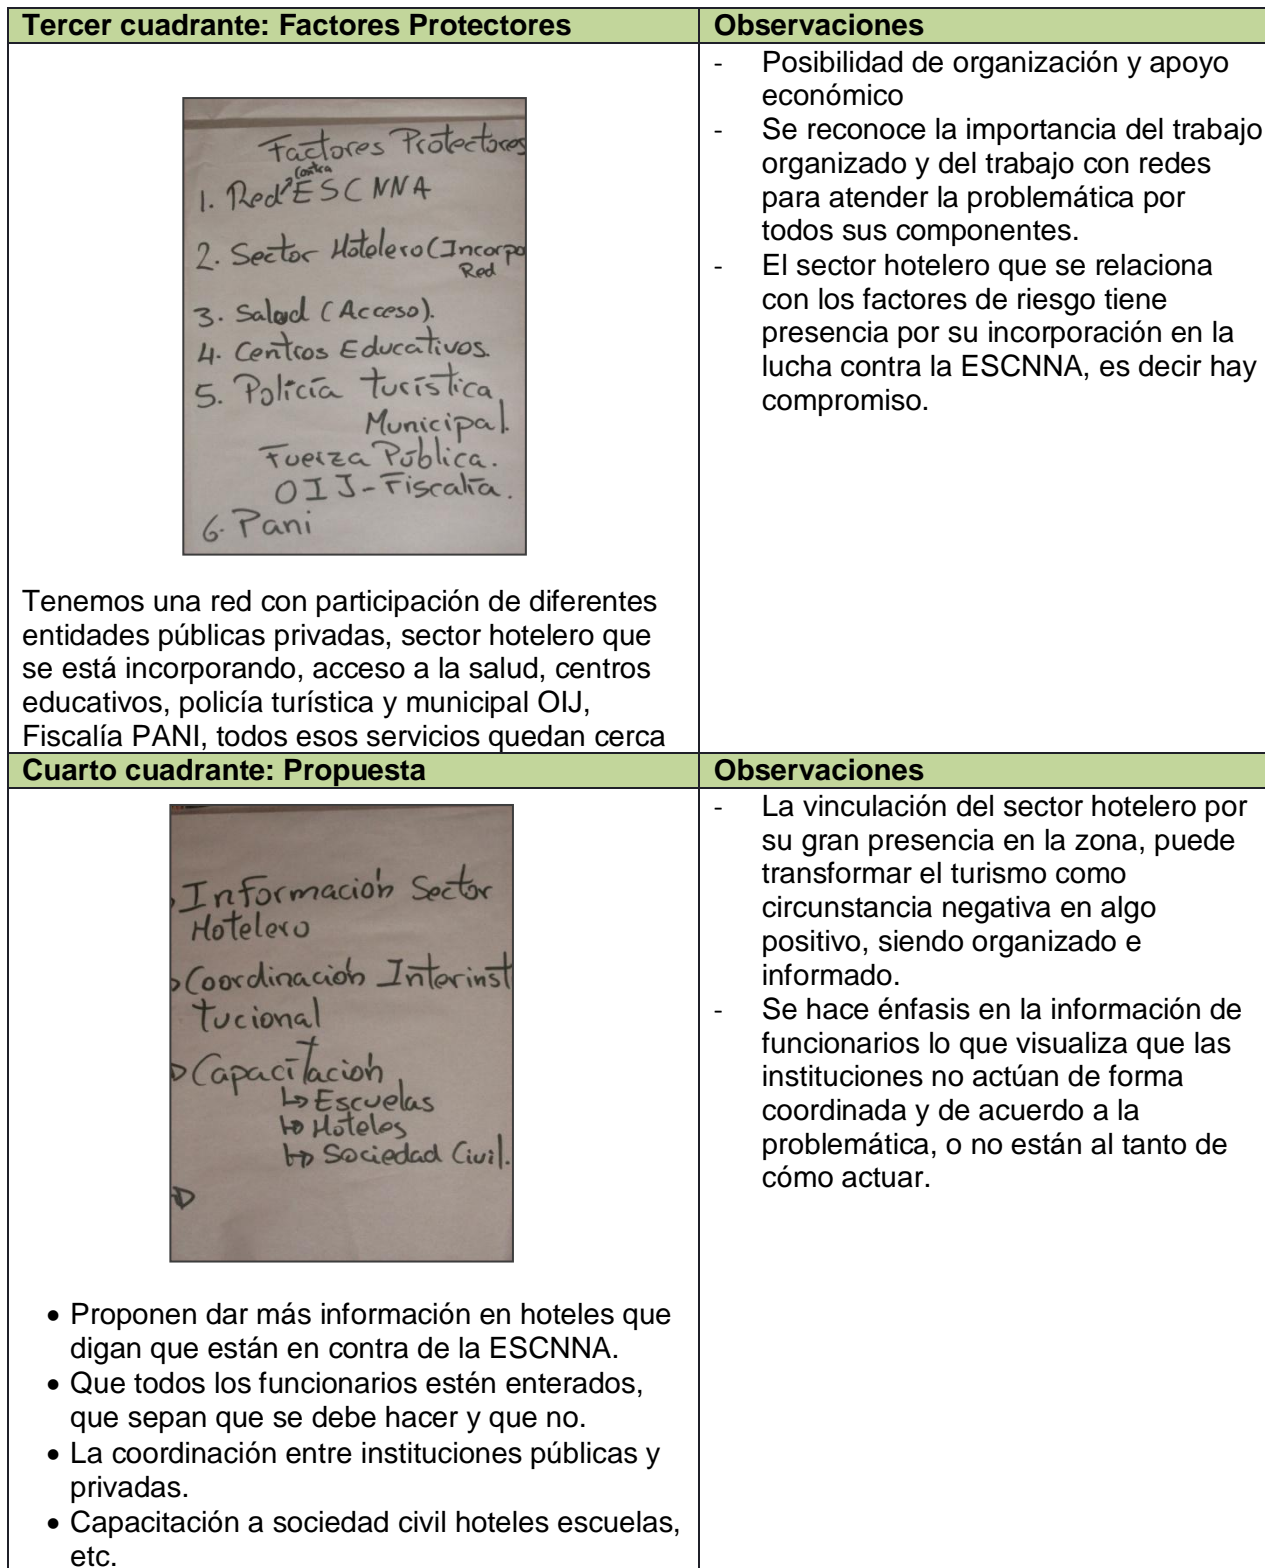 Tercer cuadrante: Factores Protectores
Observaciones
Factores Protectores
contra
1. Red ESCNNA
2. Sector Hotelero (Incorpo
Red
3. Salud (Acceso).
4. Centros Educativos.
5. Policía turística
Municipal.
Fuerza Pública.
OIJ-Fiscalía.
6. Pani
Tenemos una red con participación de diferentes
entidades públicas privadas, sector hotelero que
se está incorporando, acceso a la salud, centros
educativos, policía turística y municipal OIJ,
Fiscalía PANI, todos esos servicios quedan cerca
- Posibilidad de organización y apoyo
económico
- Se reconoce la importancia del trabajo
organizado y del trabajo con redes
para atender la problemática por
todos sus componentes.
- El sector hotelero que se relaciona
con los factores de riesgo tiene
presencia por su incorporación en la
lucha contra la ESCNNA, es decir hay
compromiso.
Cuarto cuadrante: Propuesta
Observaciones
Información Sector
Hotelero
Coordinación Interinst
tucional
Capacitación
↳ Escuelas
↳ Hoteles
↳ Sociedad Civil.
• Proponen dar más información en hoteles que
digan que están en contra de la ESCNNA.
• Que todos los funcionarios estén enterados,
que sepan que se debe hacer y que no.
• La coordinación entre instituciones públicas y
privadas.
• Capacitación a sociedad civil hoteles escuelas,
etc.
- La vinculación del sector hotelero por
su gran presencia en la zona, puede
transformar el turismo como
circunstancia negativa en algo
positivo, siendo organizado e
informado.
- Se hace énfasis en la información de
funcionarios lo que visualiza que las
instituciones no actúan de forma
coordinada y de acuerdo a la
problemática, o no están al tanto de
cómo actuar.